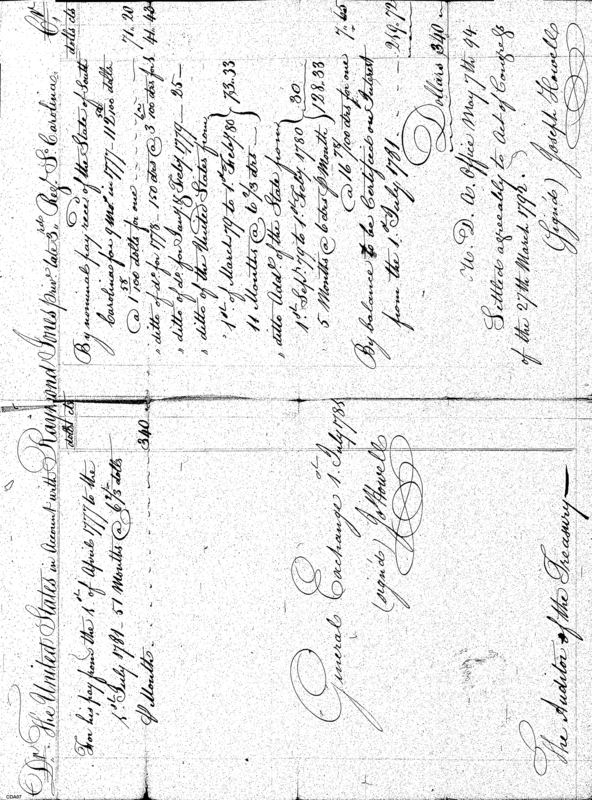 Dr. The United States in Account with Raymond Jones private late 3rd Regt S. Carolina Cr
dolls cts
For his pay from the 1st of April 1777 to the
1st July 1781 - 51 Months @ 6 2/3 dolls
Months - - - - 340
General Exchange 1st July 1781
(signd) Jo Howell
The Auditor of the Treasury
dolls cts
By nominal pay recd of the State of South
Carolina for 9 Mos in 1777 112.50 dolls
@ 1 58/100 dolls for one - - 71.20
" ditto of do for 1778 - 150 drs @ 3 /100 drs for 1 41.43
" ditto of do for Jany & Feby 1779 - 25 -
" ditto of the United States from
1st of March 79 to 1st Feby 80 } 73.33
11 Months @ 6 2/3 drs
" ditto Addl of the State from
1st Sepr 79 to 1st Feby 1780 } 30
5 Months @ 6 drs Month } 128.33
@ 16 78/100 drs for one 7.65
By balance to be Certified on Interest
from the 1st July 1781 - - - 219.72
Dollars 340
W. D. A. Office May 7th 94
Settled agreeably to Act of Congress
of the 27th March 1792.
(Sign'd) Joseph Howell
CDA07